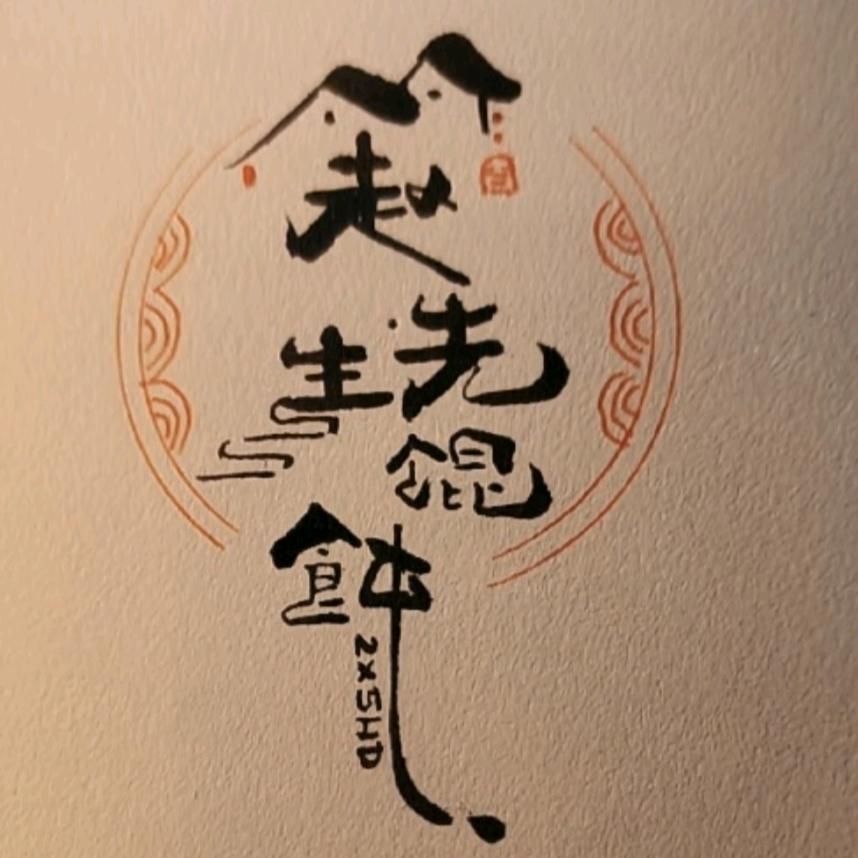 赵
先生
馄
飩
ZXSHD